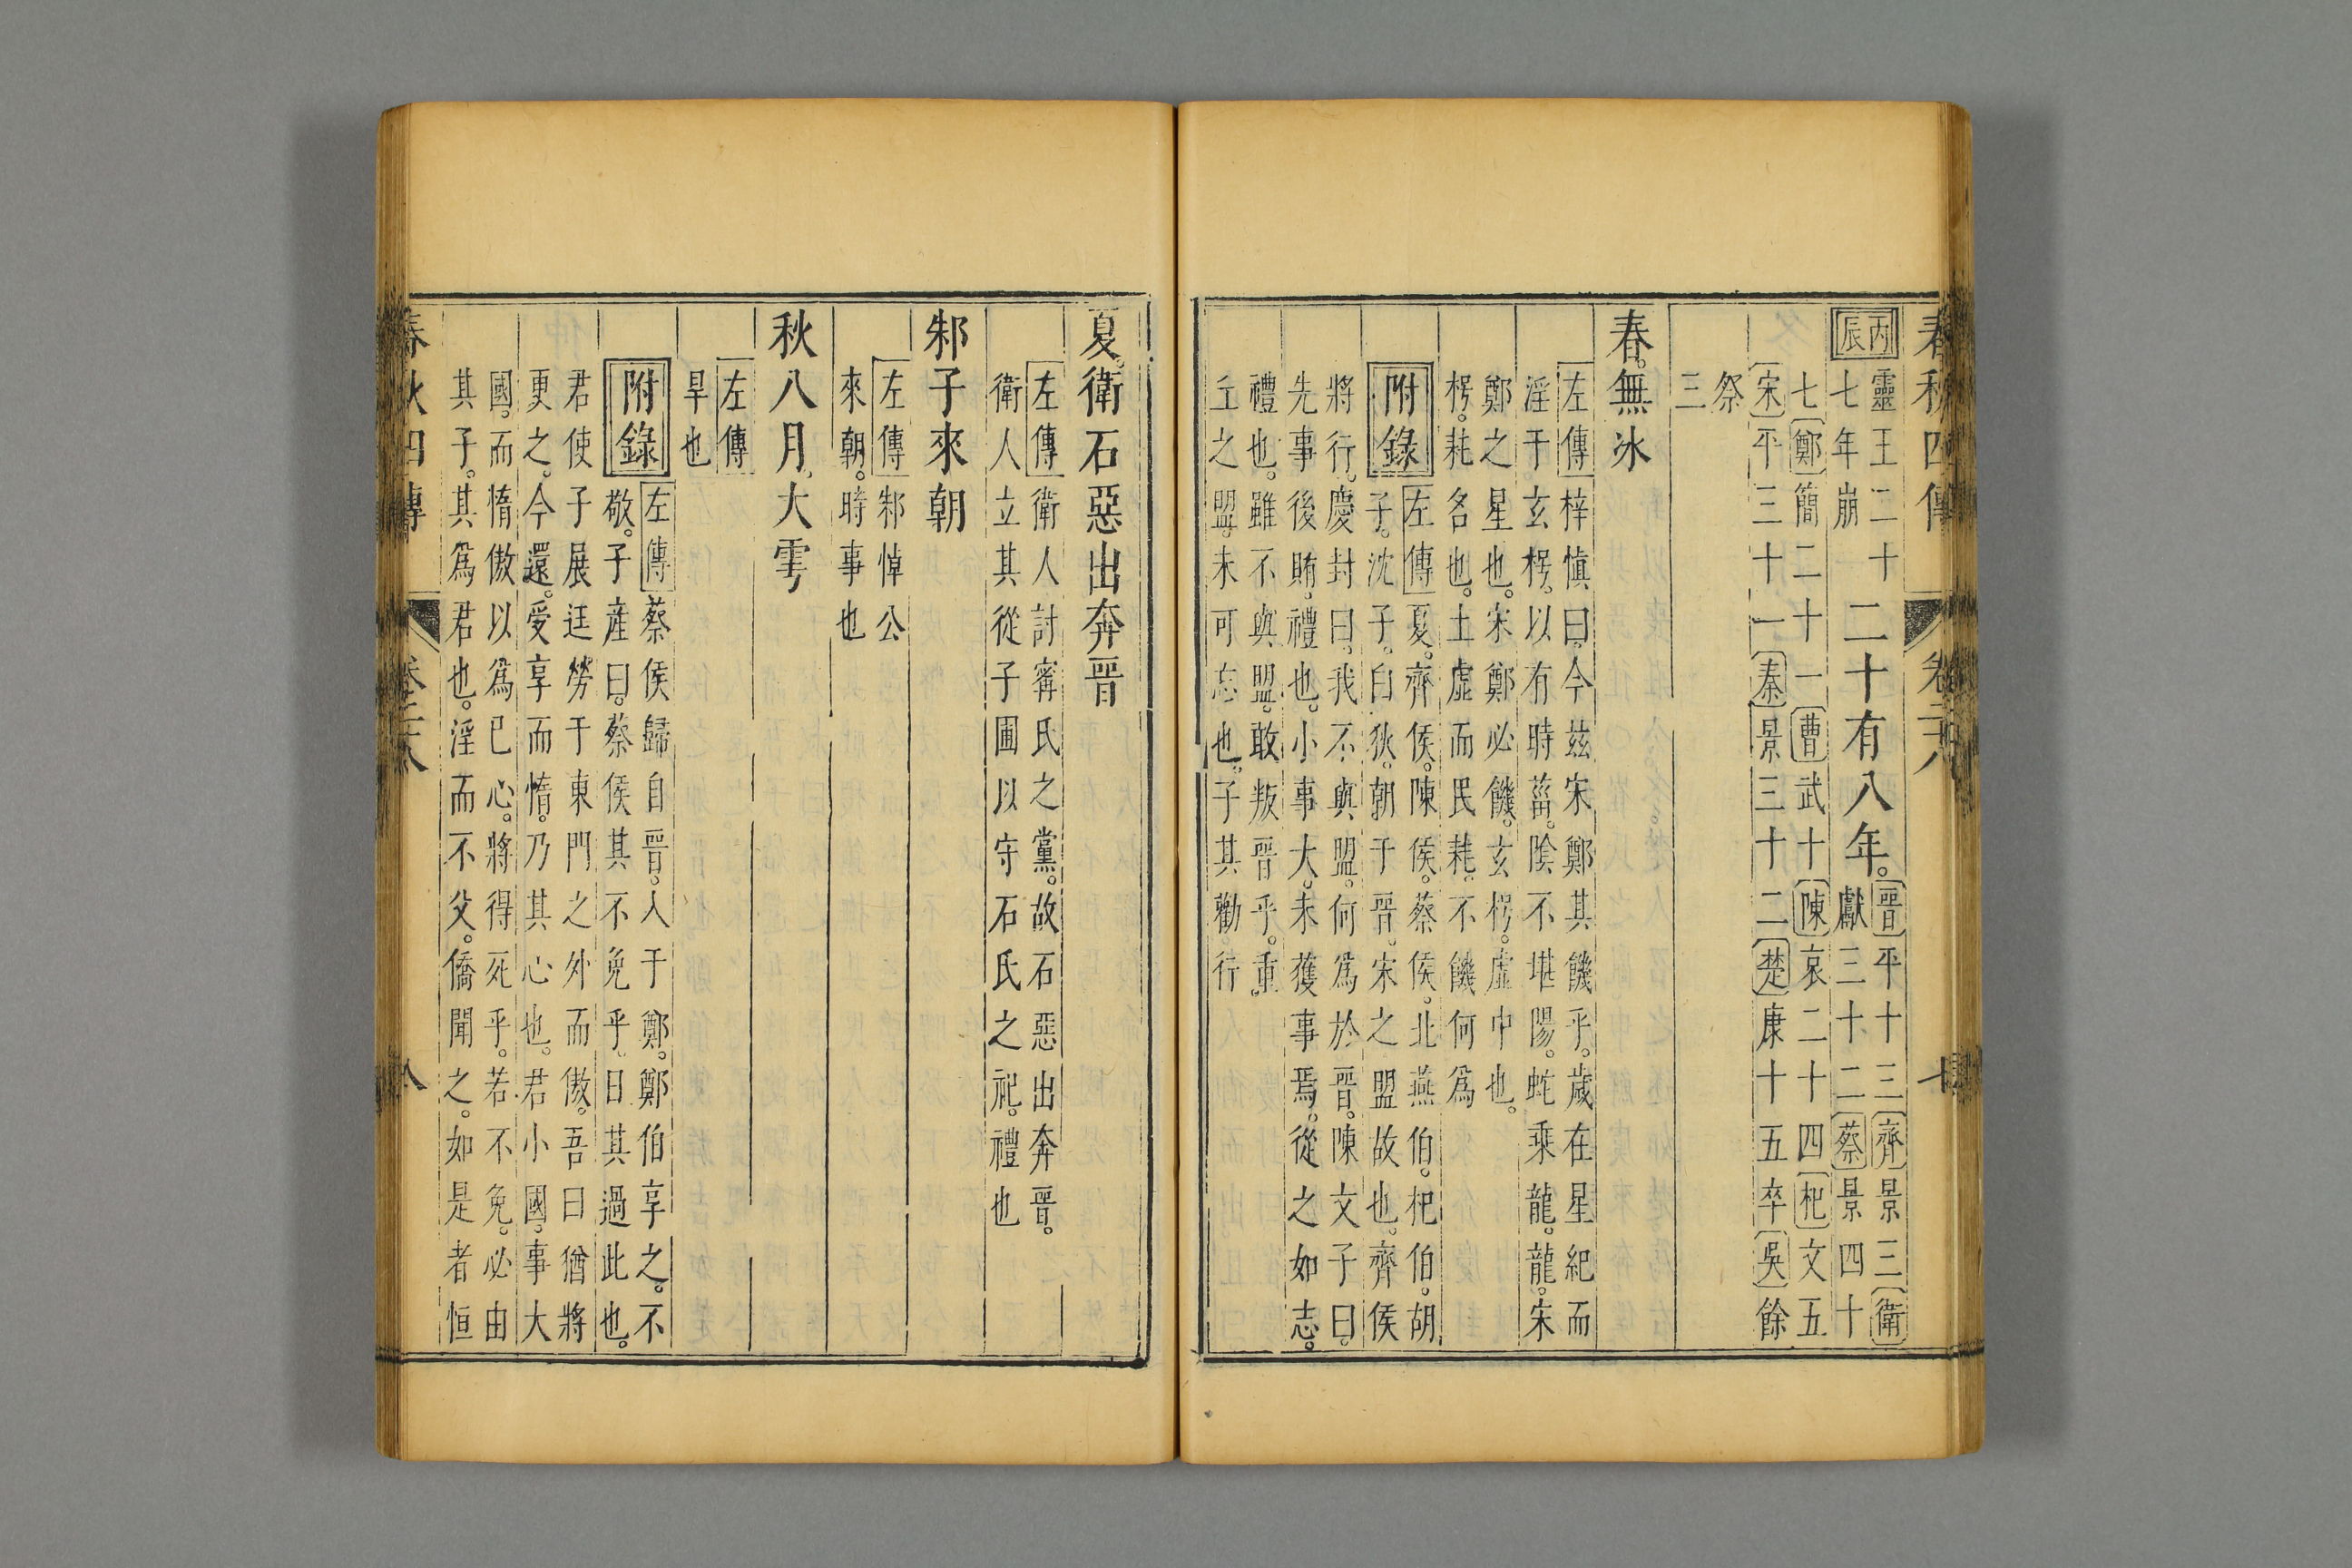 春秋四傳 卷二十八 七
丙辰
靈王二十
七年崩
二十有八年。
晉平十三齊景三衛
獻三十二蔡景四十
七鄭簡二十一曹武十陳哀二十四杞文五
宋平三十一秦景三十二楚康十五卒吳餘
祭
三
春。無冰
左傳梓慎曰。今茲宋鄭其饑乎。歲在星紀而
淫于玄枵。以有時菑。陰不堪陽。蛇乘龍。龍。宋
鄭之星也。宋鄭必饑。玄枵。虛中也。
枵。耗名也。土虛而民耗。不饑何為
附錄
左傳夏。齊侯。陳侯。蔡侯。北燕伯。杞伯。胡
子。沈子。白狄。朝于晉。宋之盟故也。齊侯
將行。慶封曰。我不與盟。何為於晉。陳文子曰。
先事後賄。禮也。小事大。未獲事焉。從之如志。
禮也。雖不與盟。敢叛晉乎。重
丘之盟。未可忘也。子其勸行
夏。衛石惡出奔晉
左傳衛人討甯氏之黨。故石惡出奔晉。
衛人立其從子圃以守石氏之祀。禮也
邾子來朝
左傳邾悼公
來朝。時事也
秋八月。大雩
左傳
旱也
附錄
左傳蔡侯歸自晉。入于鄭。鄭伯享之。不
敬。子產曰。蔡侯其不免乎。日其過此也。
君使子展迋勞于東門之外而傲。吾曰猶將
更之。今還。受享而惰。乃其心也。君小國。事大
國。而惰傲以為己心。將得死乎。若不免。必由
其子。其為君也。淫而不父。僑聞之。如是者恒
春秋四傳 卷二十八 八